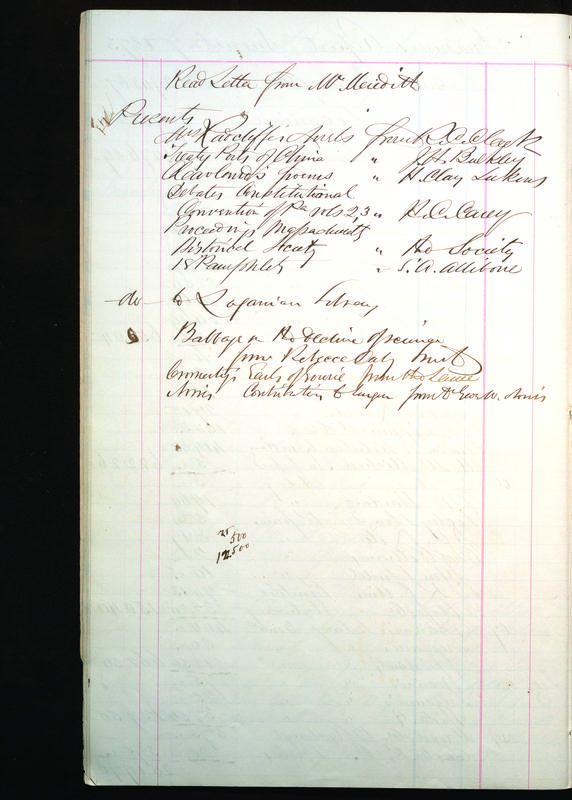 Read Letter from Mr Meredith
Presents
Mrs Radcliffes Novels from
Treaty Ports of China " J. H. Bulkley
poems " H. Clay Lukens
Debates Constitutional
Convention of Pa vols 2, 3 " H. C. Carey
Proceedings Massachusetts
Historical Society " the Society
18 Pamphlets " S. A. Allibone
do to Loganian Library
Babbage on the Decline of science
from
Earls of Gowrie from the
Norris Contribution to Surgery from Dr Geo W. Norris
25
500
12500